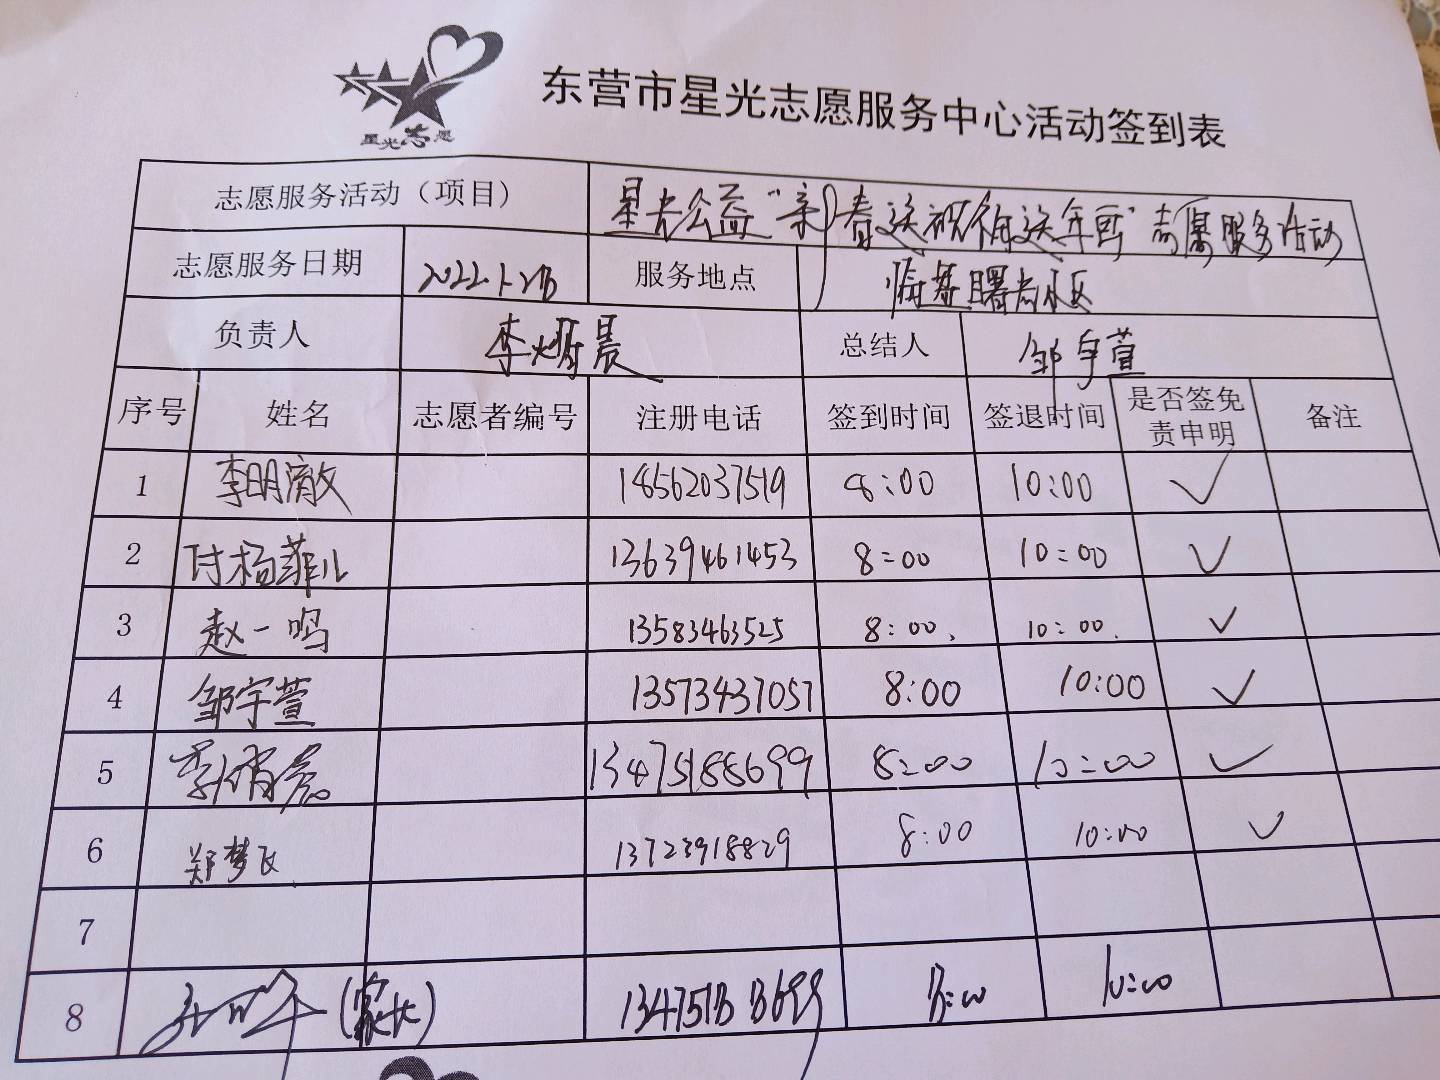 星光志愿
东营市星光志愿服务中心活动签到表
志愿服务活动（项目） 星光公益“新春送祝福送年画”志愿服务活动
志愿服务日期 2022.1.27日 服务地点 曙光小区
负责人 李 晨 总结人 邹宇萱
序号 姓名 志愿者编号 注册电话 签到时间 签退时间 是否签免责申明 备注
1 李明澈 18562037519 8:00 10:00 ✓
2 付杨菲儿 13639461453 8:00 10:00 ✓
3 赵一鸣 13583463525 8:00. 10:00. ✓
4 邹宇萱 13573437057 8:00 10:00 ✓
5 13475188699 8:00 10:00 ✓
6 郑梦飞 13723918829 8:00 10:00 ✓
7
8 (家长) 13475188699 8:00 10:00